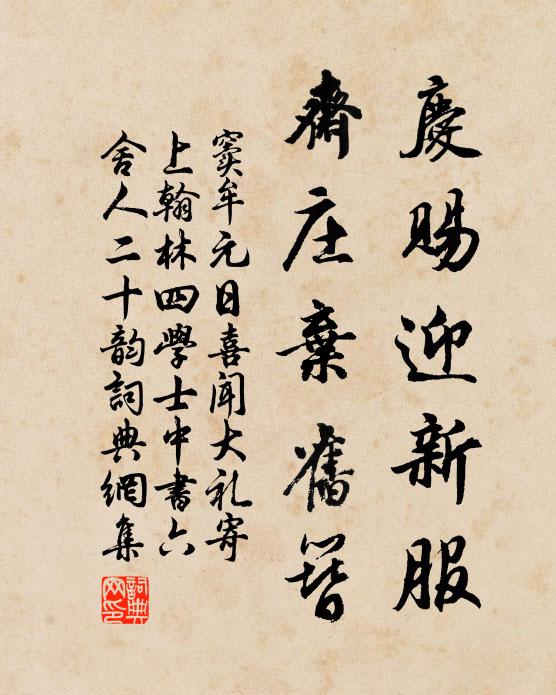 慶賜迎新服
齋庄棄舊簪
窦牟元日喜聞大礼寄
上翰林四學士中書六
舍人二十韵詞典網集
詞典网印